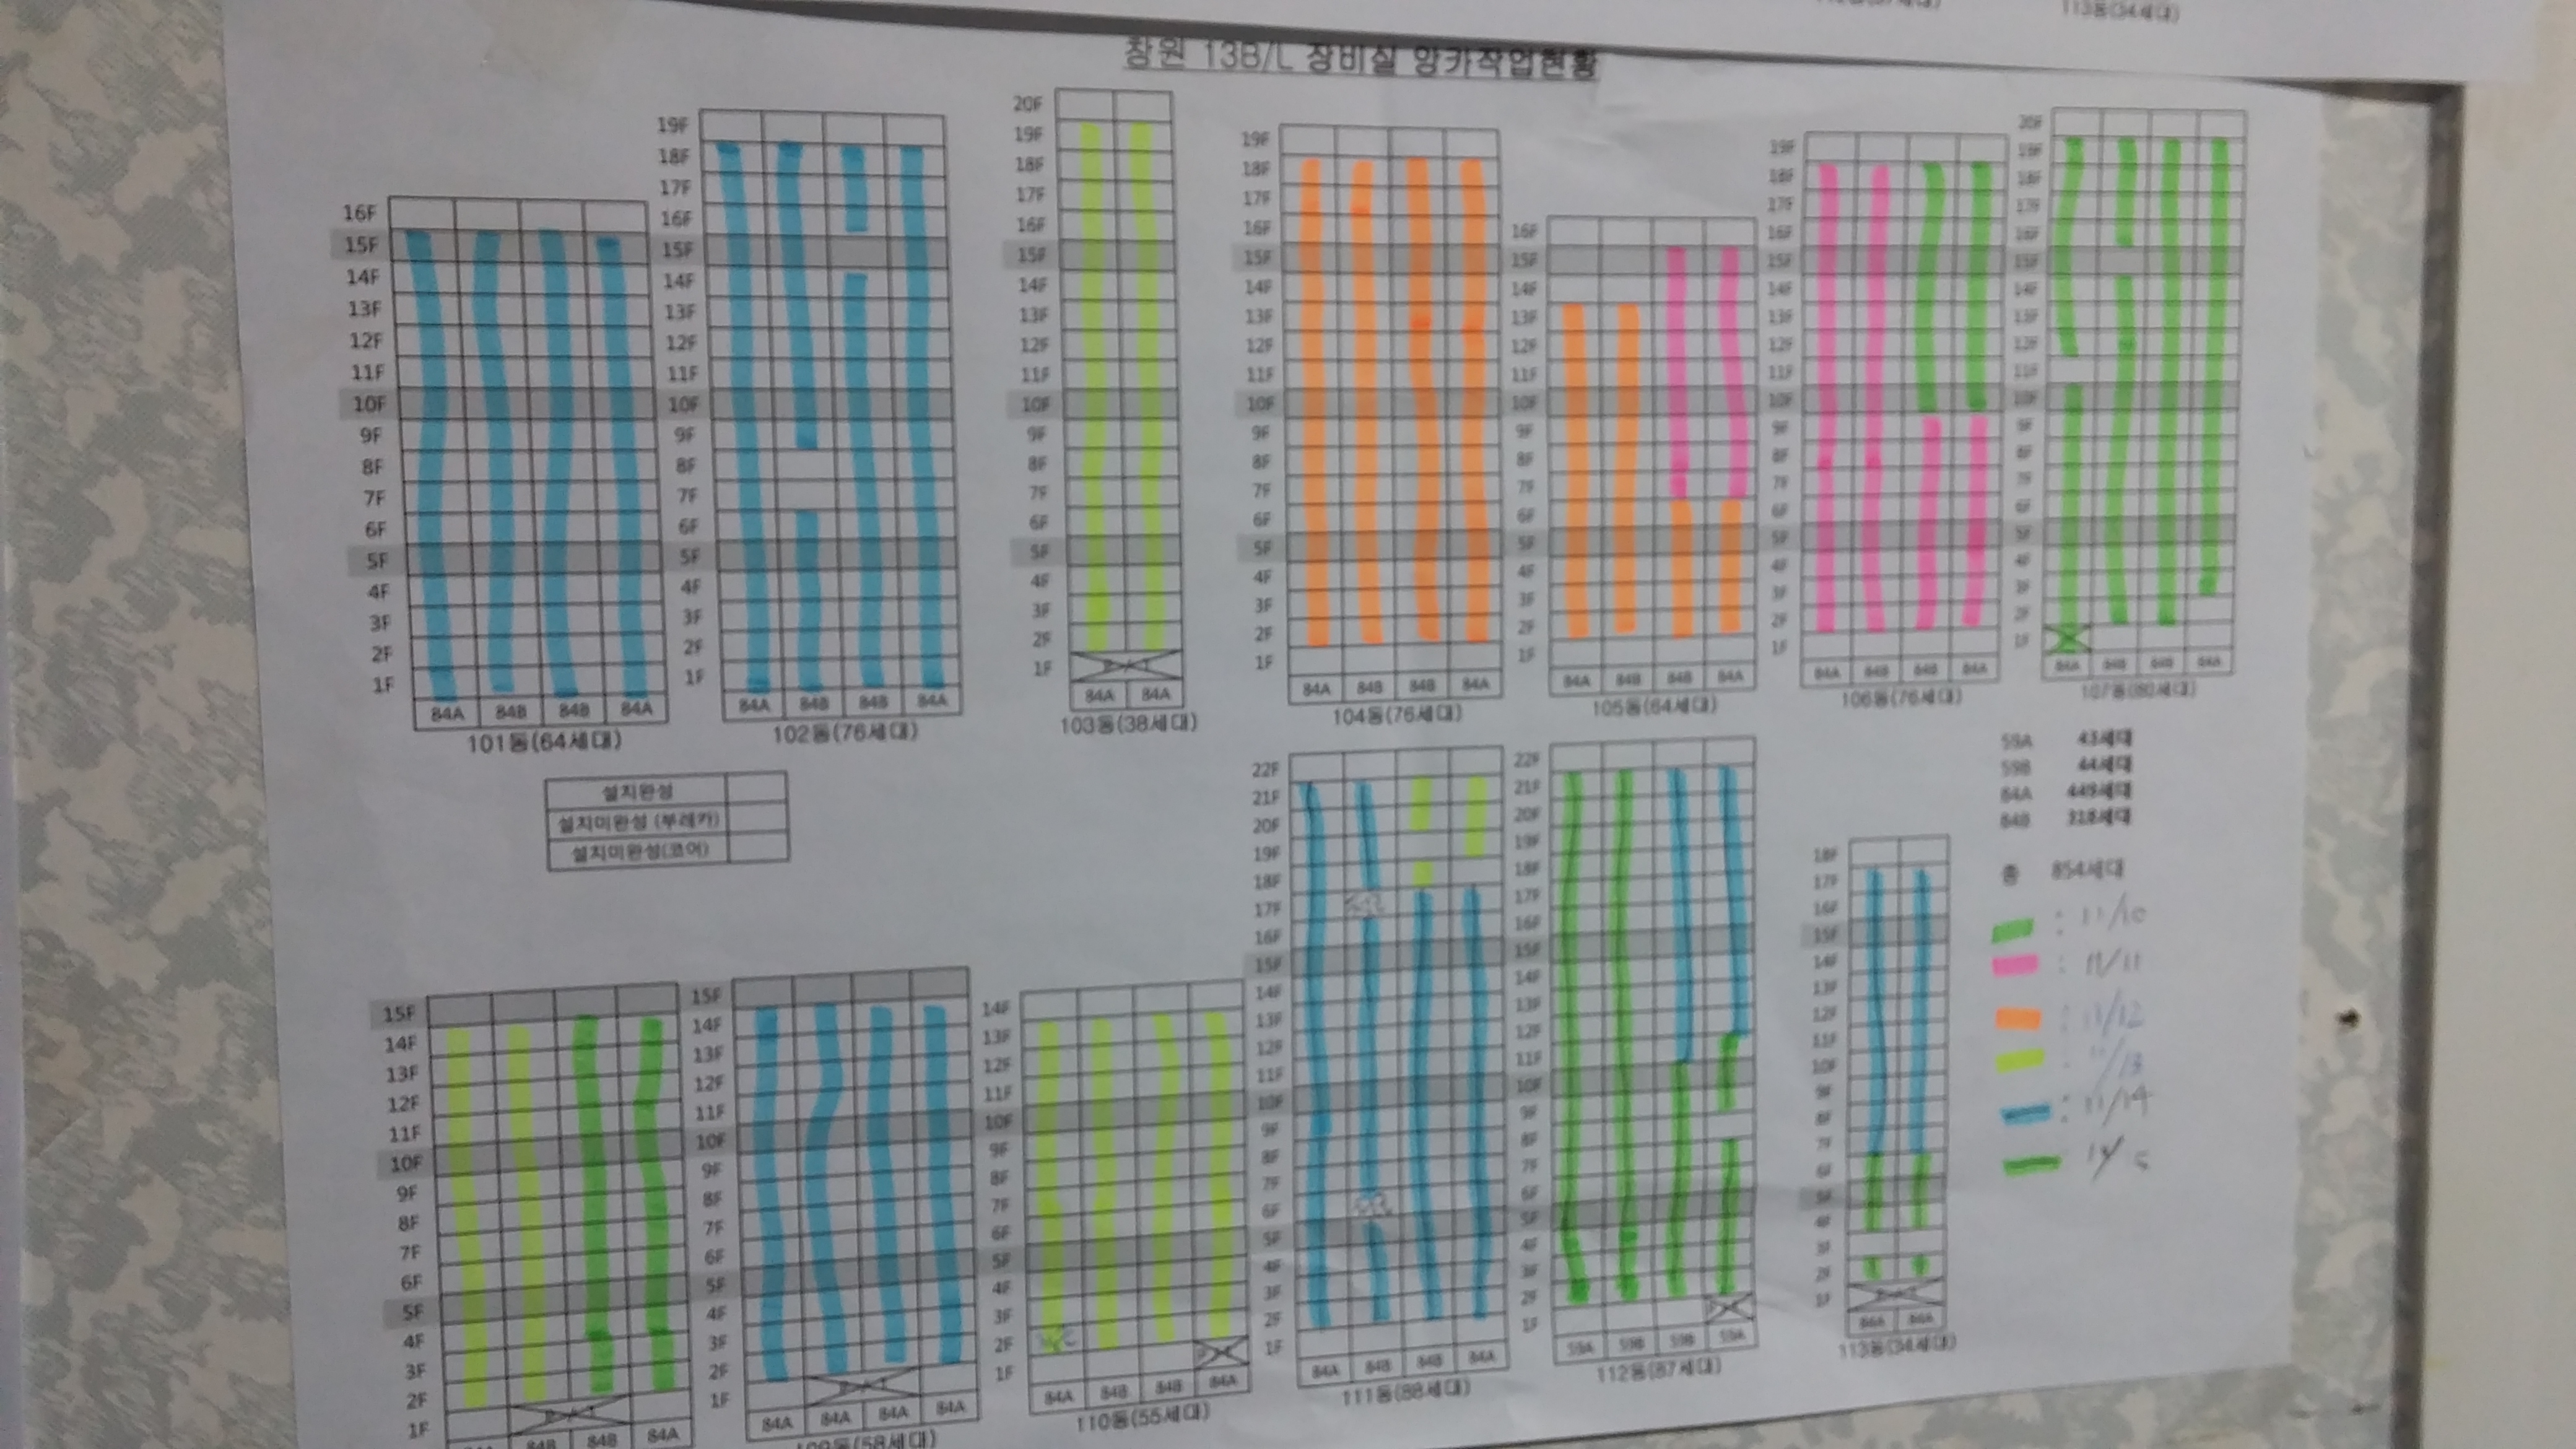 113동(34세대)
창원 13B/L 장비실 앙카작업현황
16F
15F
14F
13F
12F
11F
10F
9F
8F
7F
6F
5F
4F
3F
2F
1F
84A 84B 84B 84A
101동(64세대)
19F
18F
17F
16F
15F
14F
13F
12F
11F
10F
9F
8F
7F
6F
5F
4F
3F
2F
1F
84A 84B 84B 84A
102동(76세대)
20F
19F
18F
17F
16F
15F
14F
13F
12F
11F
10F
9F
8F
7F
6F
5F
4F
3F
2F
1F
84A 84A
103동(38세대)
19F
18F
17F
16F
15F
14F
13F
12F
11F
10F
9F
8F
7F
6F
5F
4F
3F
2F
1F
84A 84B 84B 84A
104동(76세대)
16F
15F
14F
13F
12F
11F
10F
9F
8F
7F
6F
5F
4F
3F
2F
1F
84A 84B 84B 84A
105동(64세대)
19F
18F
17F
16F
15F
14F
13F
12F
11F
10F
9F
8F
7F
6F
5F
4F
3F
2F
1F
84A 84B 84B 84A
106동(76세대)
20F
19F
18F
17F
16F
15F
14F
13F
12F
11F
10F
9F
8F
7F
6F
5F
4F
3F
2F
1F
84A 84B 84B 84A
107동(80세대)
설치완성
설치미완성 (부레카)
설치미완성(코어)
59A 43세대
59B 44세대
84A 449세대
84B 318세대
총 854세대
: 11/10
: 11/11
: 11/12
: 11/13
: 11/14
15F
14F
13F
12F
11F
10F
9F
8F
7F
6F
5F
4F
3F
2F
1F
84B 84B 84A
15F
14F
13F
12F
11F
10F
9F
8F
7F
6F
5F
4F
3F
2F
1F
84A 84A 84A 84A
109동(58세대)
14F
13F
12F
11F
10F
9F
8F
7F
6F
5F
4F
3F
2F
1F
84A 84B 84B 84A
110동(55세대)
22F
21F
20F
19F
18F
17F
16F
15F
14F
13F
12F
11F
10F
9F
8F
7F
6F
5F
4F
3F
2F
1F
84A 84B 84B 84A
111동(88세대)
22F
21F
20F
19F
18F
17F
16F
15F
14F
13F
12F
11F
10F
9F
8F
7F
6F
5F
4F
3F
2F
1F
59A 59B 59B 59A
112동(87세대)
18F
17F
16F
15F
14F
13F
12F
11F
10F
9F
8F
7F
6F
5F
4F
3F
2F
1F
113동(34세대)